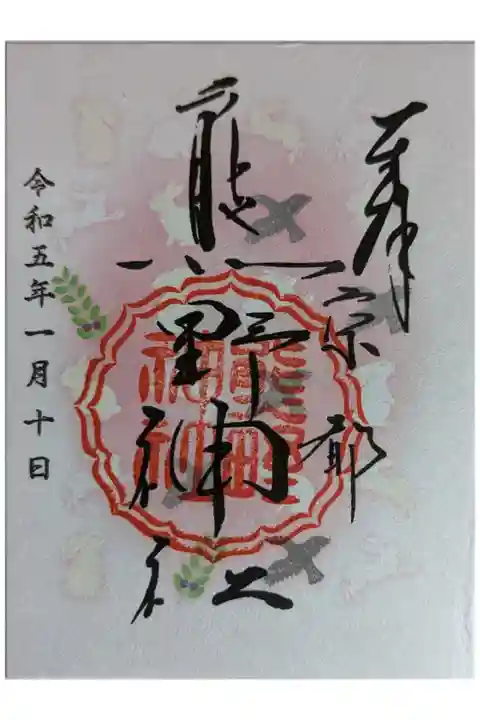 奉拝
京都
熊野神社
熊野
神社
令和五年一月十日